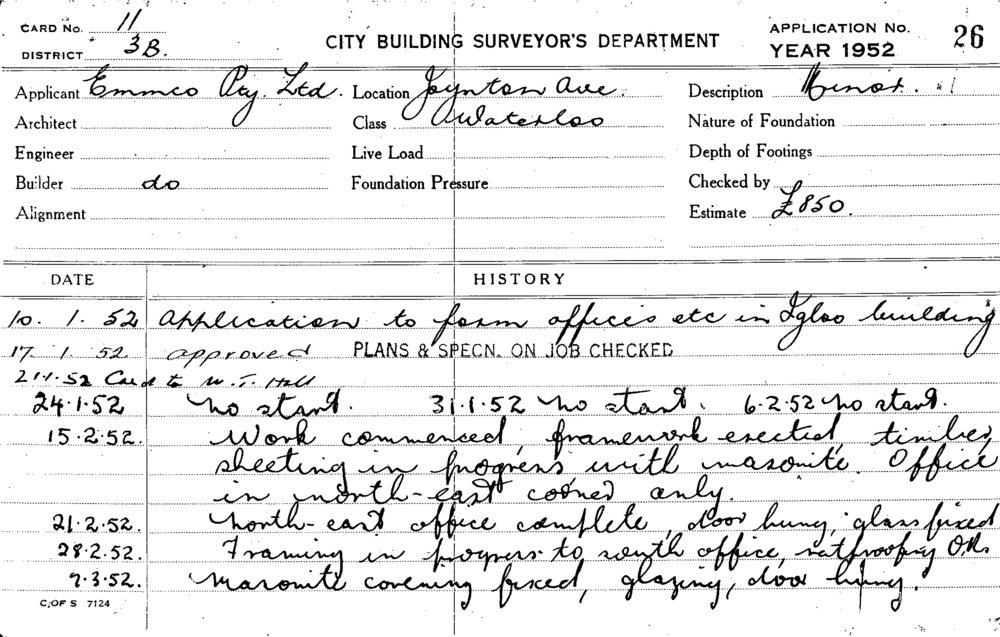 CARD No. 11
DISTRICT 3B.
CITY BUILDING SURVEYOR'S DEPARTMENT
APPLICATION No. 26
YEAR 1952
Applicant Emmco Pty. Ltd. Location Joynton Ave. Description Minor.
Architect Class Waterloo Nature of Foundation
Engineer Live Load Depth of Footings
Builder do Foundation Pressure Checked by
Alignment Estimate £850.
DATE HISTORY
10. 1. 52 Application to form offices etc in Igloo building
17. 1. 52 approved PLANS & SPECN. ON JOB CHECKED
21.1.52 Card to W. T. Hall
24.1.52 No start. 31.1.52 No start. 6.2.52 No start.
15.2.52. Work commenced, framework erected, timber,
sheeting in progress with masonite. Office
in north-east corner only.
21.2.52. North-east office complete, door hung, glass fixed
28.2.52. Framing in progress to south office, ratproofing O.K.
9.3.52. Masonite covering fixed, glazing, door hung.
C. OF S 7124